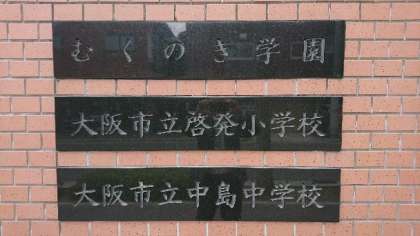 むくのき学園
大阪市立啓発小学校
大阪市立中島中学校